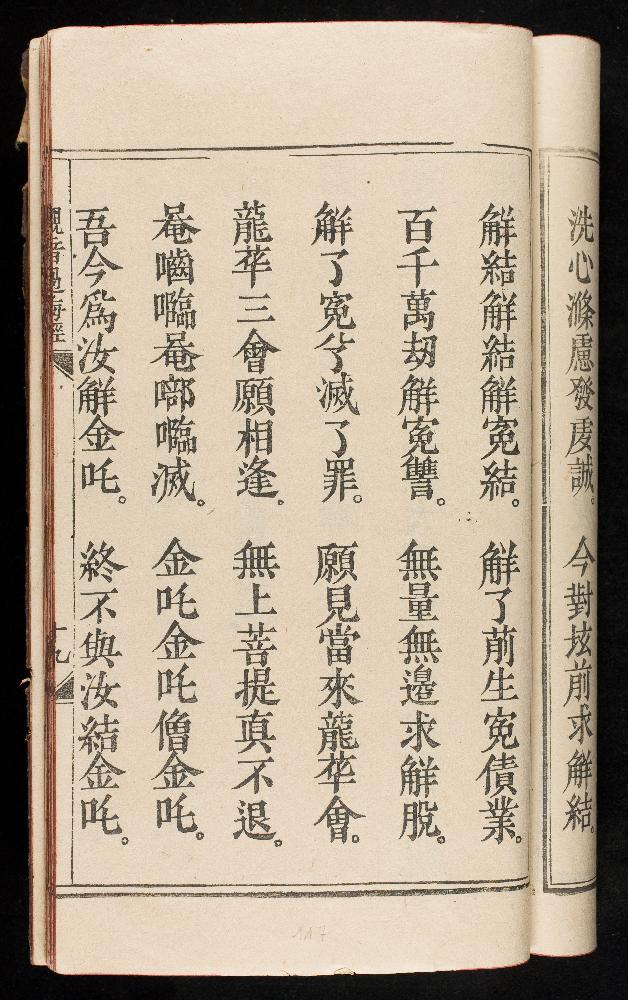 洗心滌慮發虔誠。今對坛前求解結。
觧結觧結觧寃結。觧了前生寃債業。
百千萬刼觧寃讐。無量無邊求觧脫。
觧了寃兮滅了罪。願見當來龍华會。
龍华三會願相逢。無上菩提真不退。
菴嚙𠾱菴㗿𠾱滅。金吒金吒僧金吒。
吾今爲汝觧金吒。終不與汝結金吒。
觀音過海經
十九
117